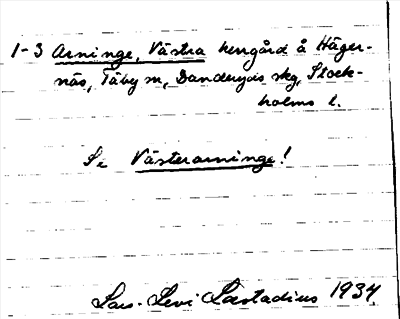 1-3 Arninge, Västra herrgård å Häger-
näs, Täby sn, Danderyds skg, Stock-
holms l.
Se Västerarninge!
Lars-Levi Læstadius 1934.